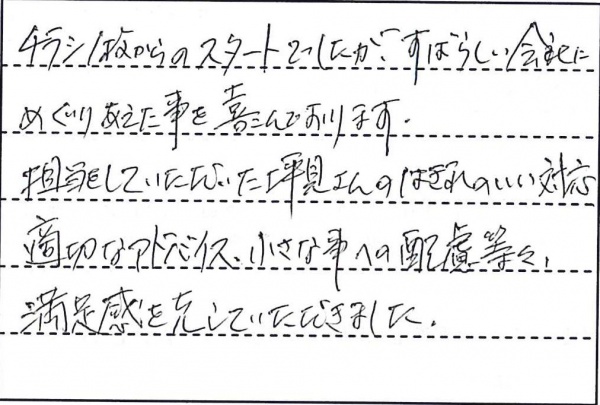 チラシ1枚からのスタートでしたが、すばらしい会社に
めぐりあえた事を喜こんでおります。
担当していただいた坪見さんのはぎれのいい対応
適切なアドバイス、小さな事への配慮等々、
満足感を充していただきました。